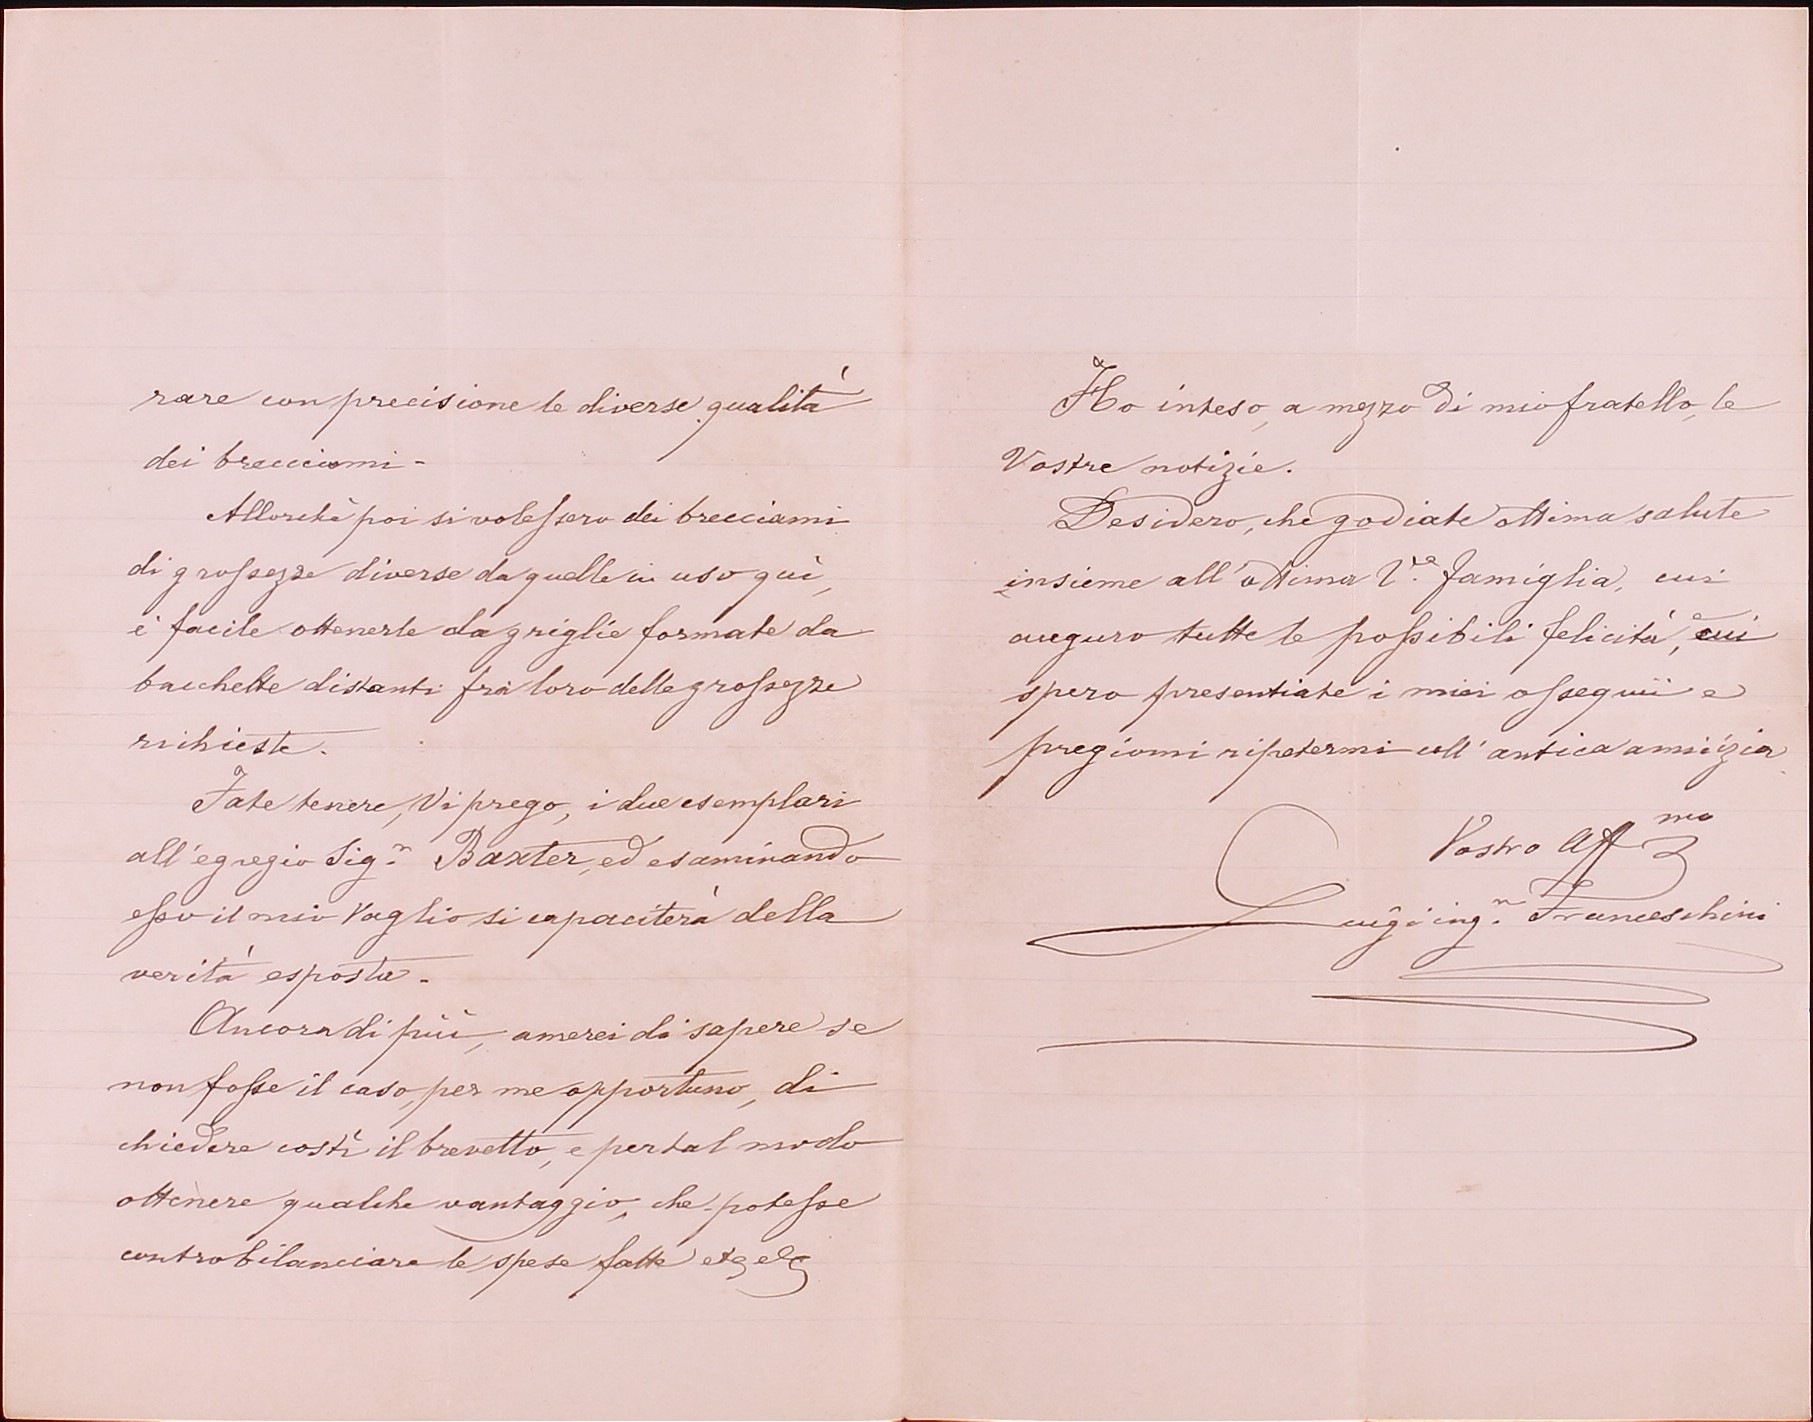 rare con precisione le diverse qualità
dei brecciami -
Allorchè poi si volessero dei brecciami
di grossezze diverse da quelle in uso quì,
è facile ottenerle da griglie formate da
bacchette distanti fra loro delle grossezze
richieste.
Fate tenere, Vi prego, i due esemplari
all'egregio Sig.r Baxter, ed esaminando
esso il mio Vaglio si capaciterà della
verità esposta.
Ancora di più, amerei di sapere se
non fosse il caso, per me opportuno, di
chiedere costì il brevetto, e per tal modo
ottenere qualche vantaggio, che potesse
controbilanciare le spese fatte etc etc
Ho inteso, a mezzo di mio fratello, le
Vostre notizie.
Desidero, che godiate ottima salute
insieme all'ottima V.ra famiglia, cui
auguro tutte le possibili felicità, e cui
spero presentiate i miei ossequii e
pregiomi ripetermi coll'antica amicizia
Vostro Aff.mo
Luigi ing.r Franceschini